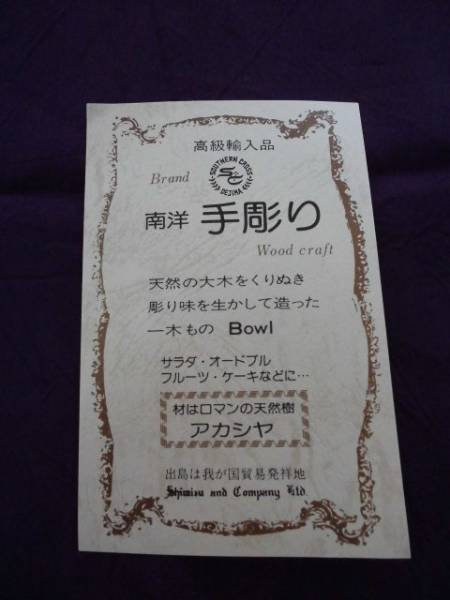 高級輸入品
Brand
SOUTHERN CROSS
DEJIMA
南洋 手彫り
Wood craft
天然の大木をくりぬき
彫り味を生かして造った
一木もの Bowl
サラダ・オードブル
フルーツ・ケーキなどに…
材はロマンの天然樹
アカシヤ
出島は我が国貿易発祥地
Shimizu and Company Ltd.